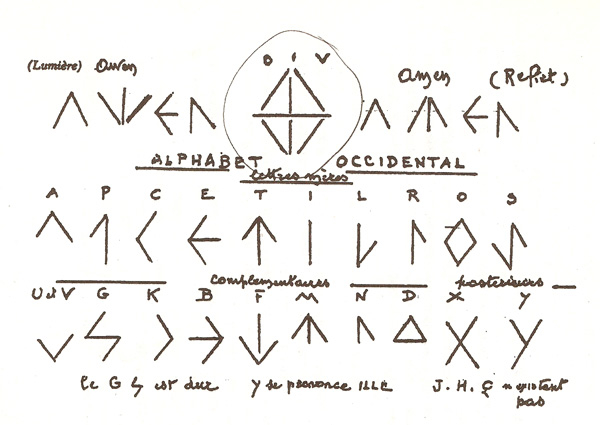 O I V
(Lumière) Awen Amen (Reflet)
ALPHABET OCCIDENTAL
lettres mères
A P C E T I L R O S
complémentaires postérieurs
U et V G K B F M N D X Y
le G ϟ est dur Y se prononce ILLE J. H. Ç n'existent pas